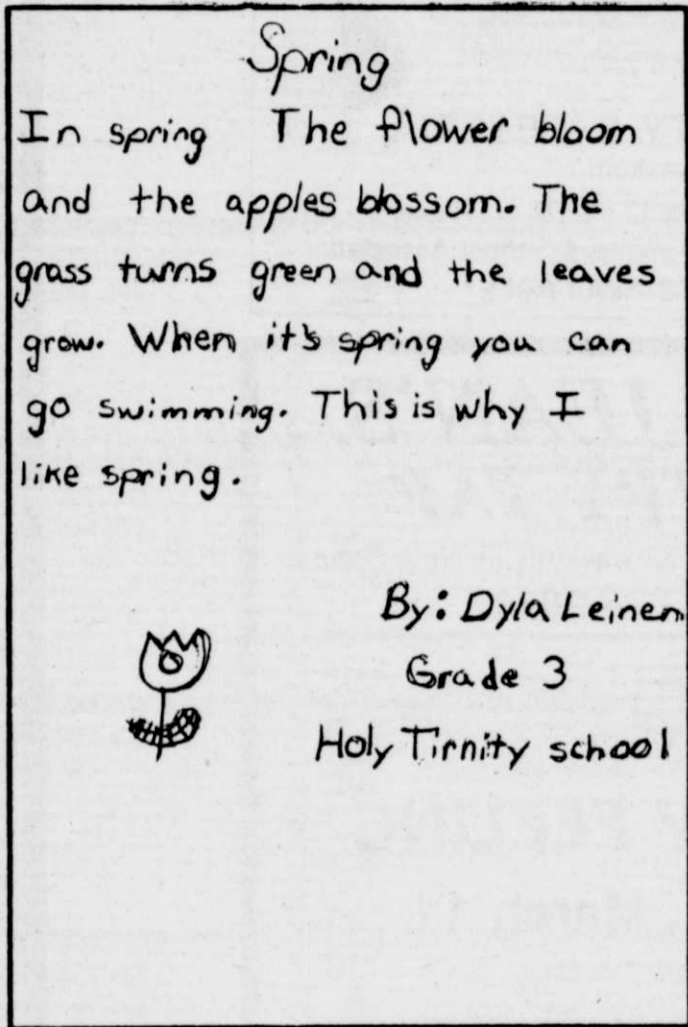 Spring
In spring The flower bloom
and the apples blossom. The
grass turns green and the leaves
grow. When it's spring you can
go swimming. This is why I
like spring.
By: Dyla Leinen
Grade 3
Holy Tirnity school